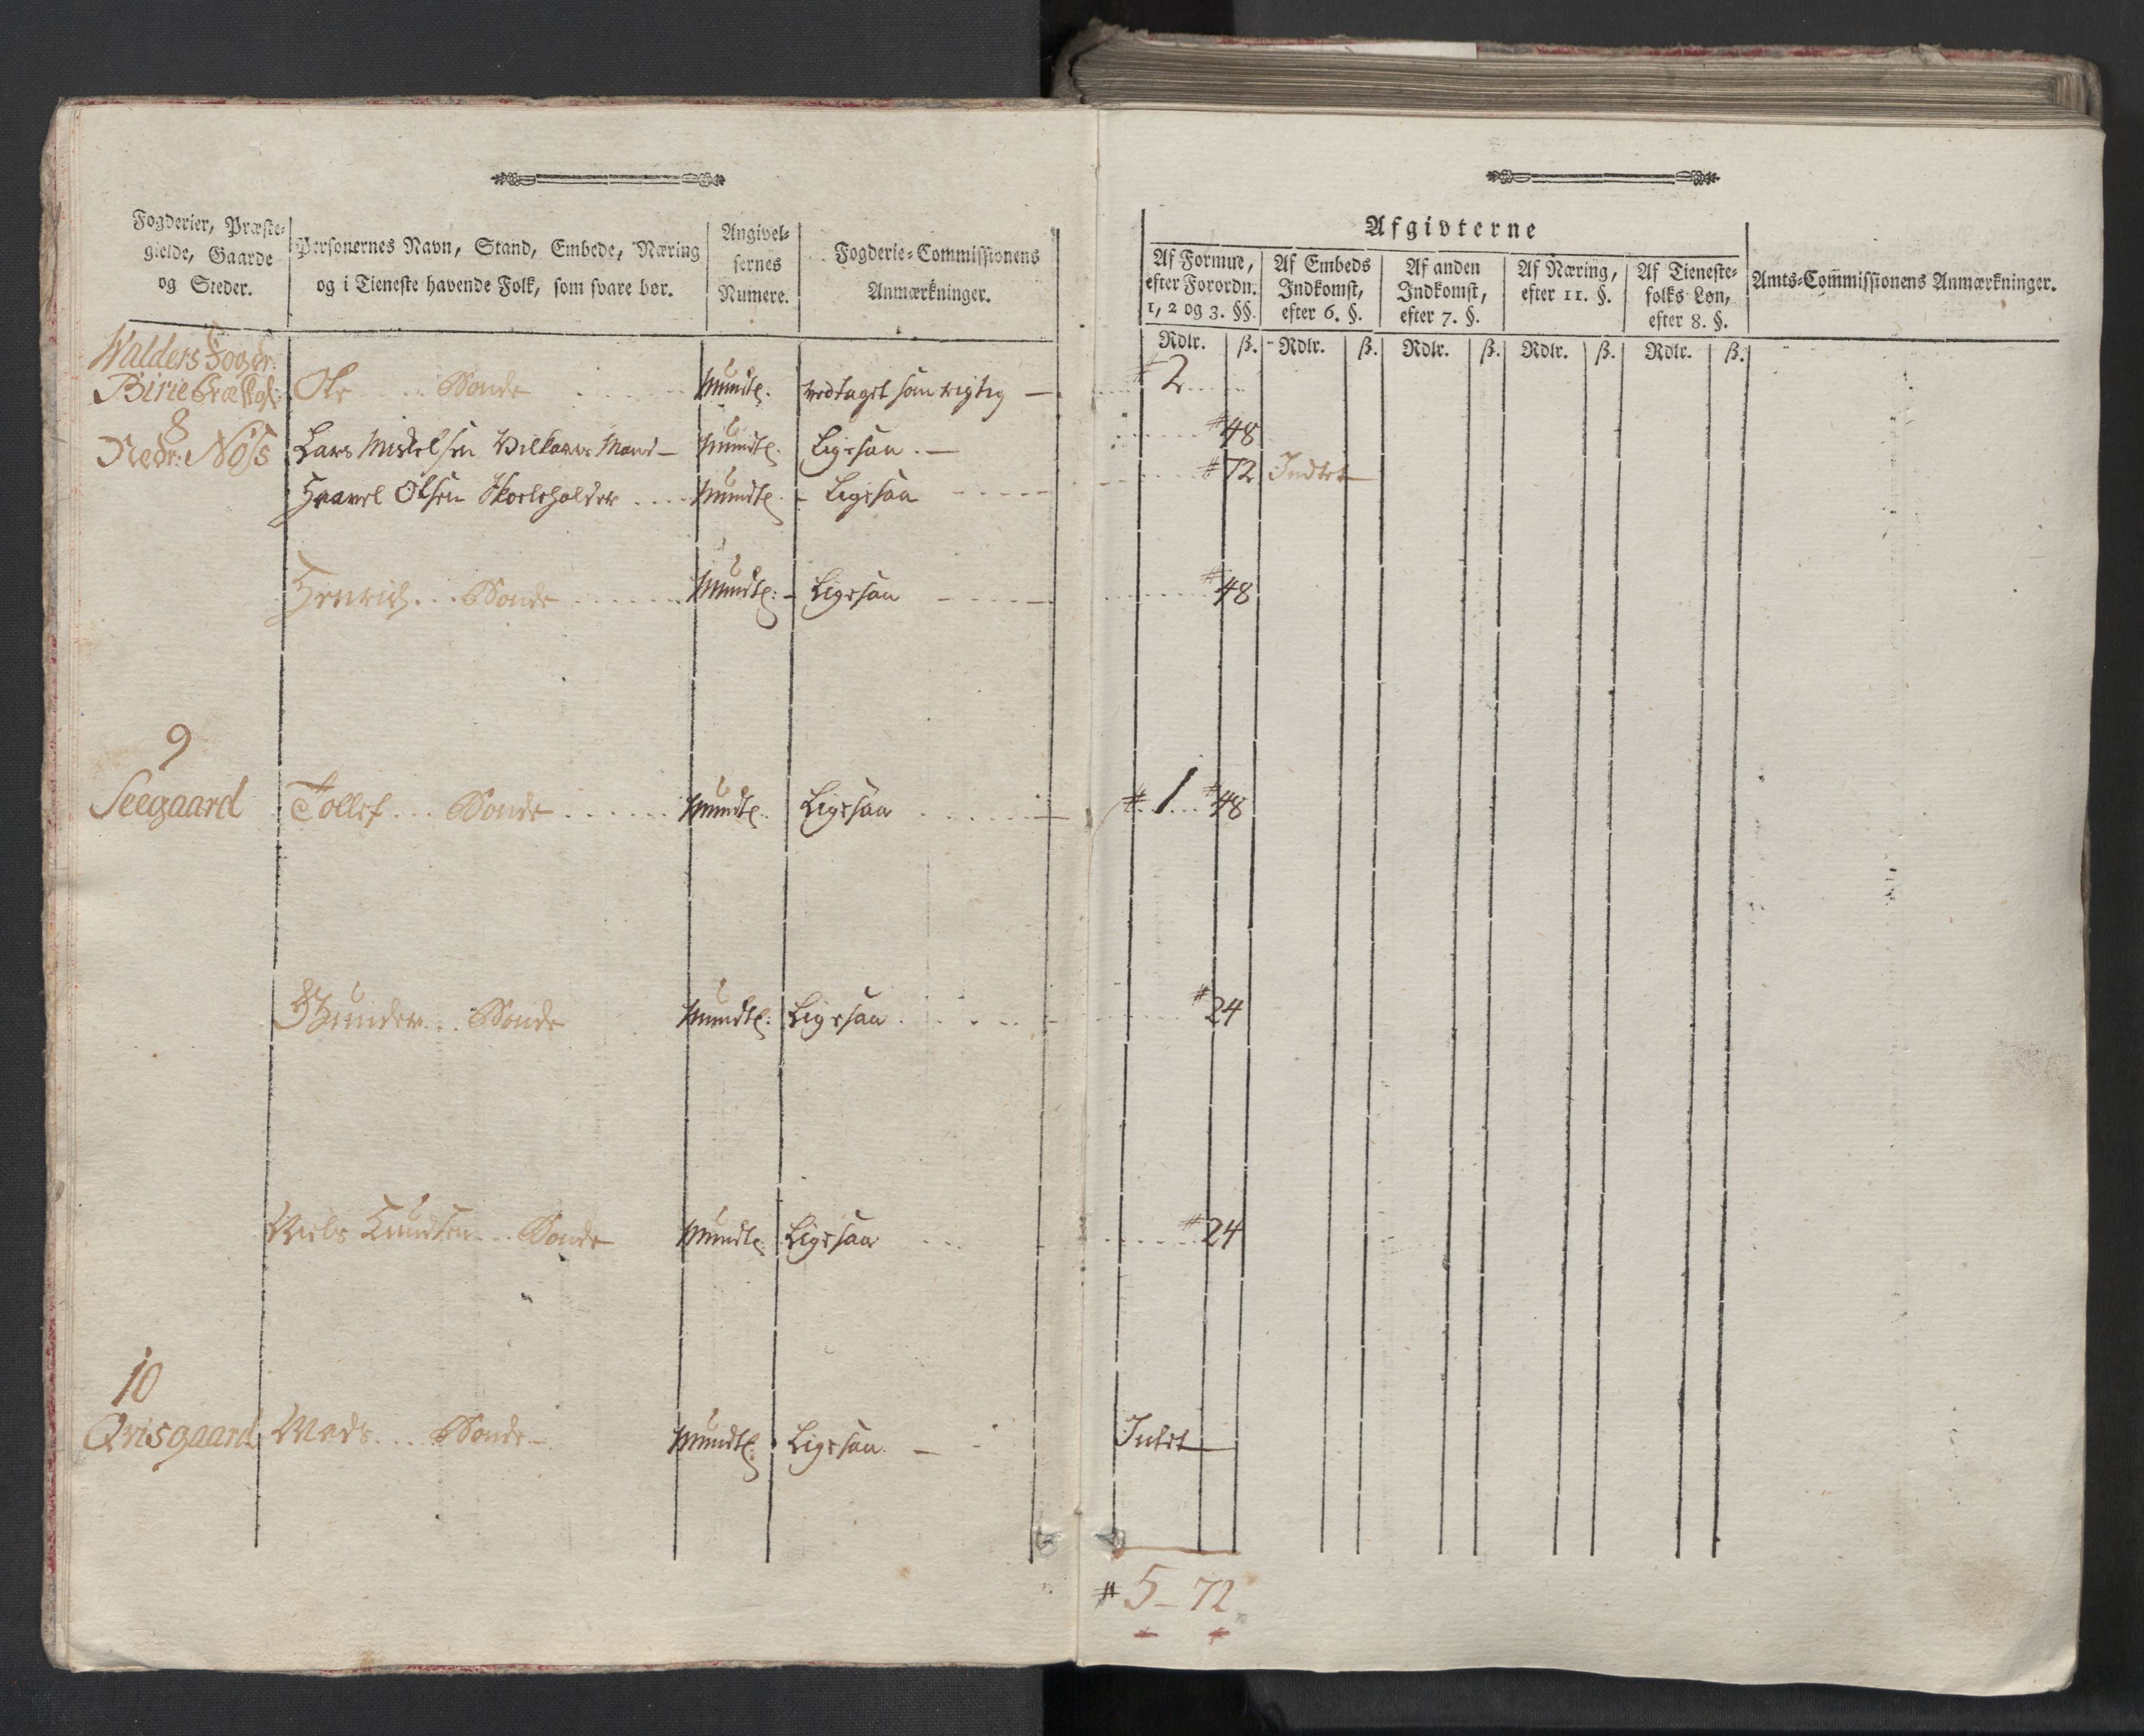 Fogderier, Præste-
gielde, Gaarde
og Steder.
Personernes Navn, Stand, Embede, Næring
og i Tieneste havende Folk, som svare bør.
Angivel-
sernes
Numere.
Fogderie-Commissionens
Anmærkninger.
Walders Fogdr:
Birie Præstgl:
8
Nedr: Nøss
Ole Bonde Mundtl: vedtaget som rigtig
Lars Mickelsen Vilkaars Mand Mundtl: Ligesaa
Haavel Olsen Skoleholder Mundtl: Ligesaa
Henrich Bonde Mundtl: Ligesaa
9
Seegaard Tollef Bonde Mundtl: Ligesaa
Gunder Bonde Mundtl: Ligesaa
Niels Knudsen Bonde Mundtl: Ligesaa
10
Qvisgaard Mads Bonde Mundtl: Ligesaa
Afgivterne
Af Formue,
efter Forordn.
1, 2 og 3. §§.
Af Embeds
Indkomst,
efter 6. §.
Af anden
Indkomst,
efter 7. §.
Af Næring,
efter 11. §.
Af Tieneste-
folks Løn,
efter 8. §.
Amts-Com̄issionens Anmærkninger.
Rdlr. ß. Rdlr. ß. Rdlr. ß. Rdlr. ß. Rdlr. ß.
2
48
72 Indtet
48
1 48
24
24
Intet
5 - 72